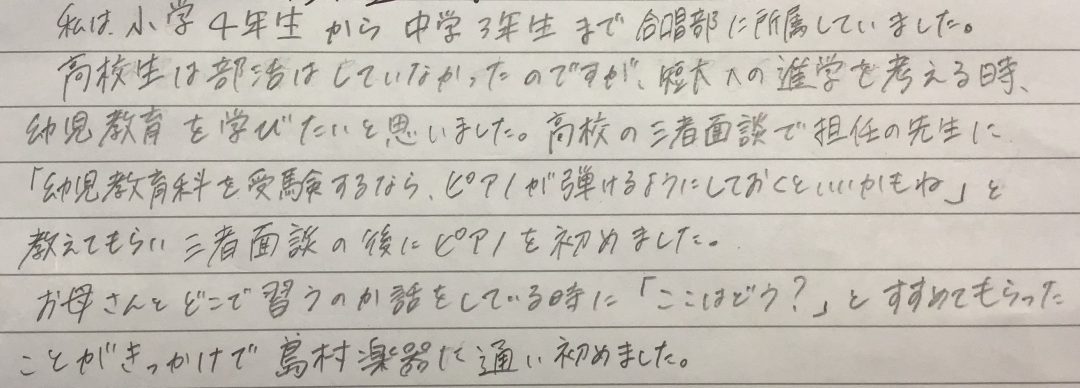 私は小学4年生から中学3年生まで合唱部に所属していました。
高校生は部活はしていなかったのですが、短大への進学を考える時、
幼児教育を学びたいと思いました。高校の三者面談で担任の先生に
「幼児教育科を受験するなら、ピアノが弾けるようにしておくといいかもね」と
教えてもらい三者面談の後にピアノを初めました。
お母さんとどこで習うのか話をしている時に「ここはどう?」とすすめてもらった
ことがきっかけで島村楽器に通い初めました。